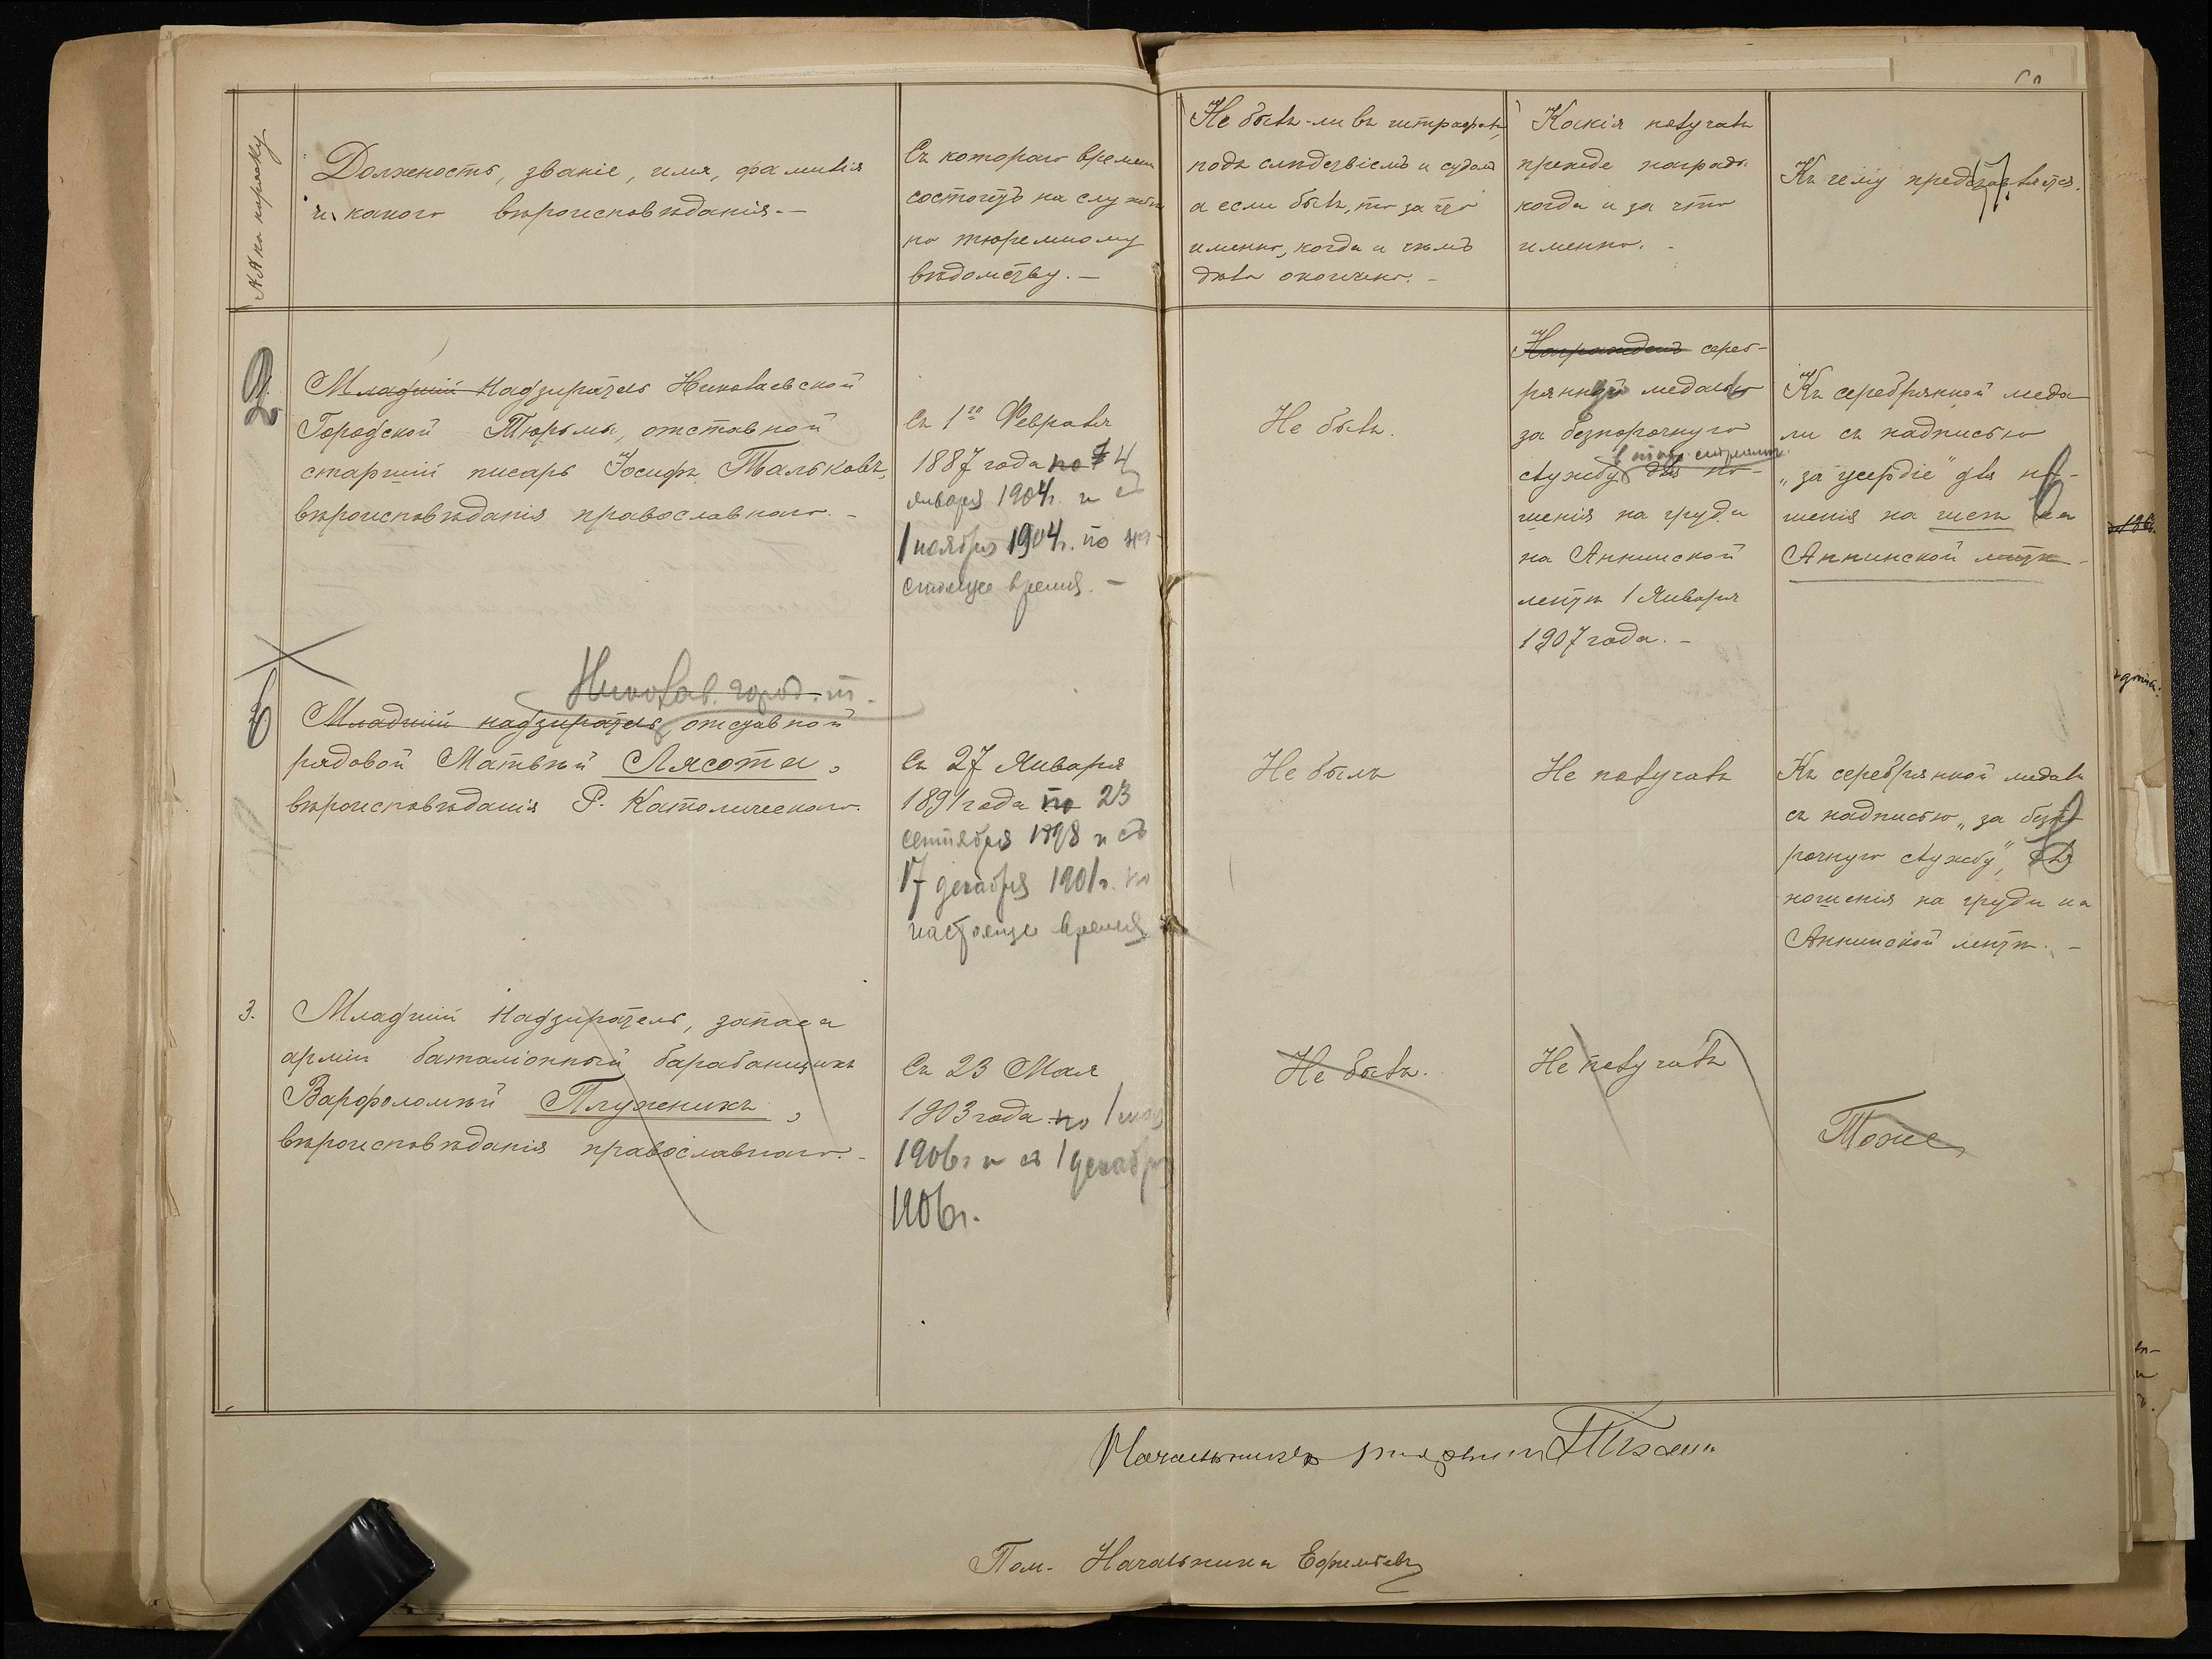 №№ по порядку
Должность, званіе, имя, фамилія
и какого вѣроисповѣданія.—
Съ котораго времени
состоитъ на службѣ
по тюремному
вѣдомству.—
Не былъ-ли въ штрафахъ,
подъ слѣдствіемъ и судомъ
а если былъ, то за что
именно, когда и чѣмъ
дѣло окончено.—
Какія получалъ
прежде награды
когда и за что
именно.-
Къ чему представляется.
2
Младшій Надзиратель Николаевской
Городской Тюрьмы, отставной
старшій писарь Іосифъ Тальковъ,
вѣроисповѣданія православнаго.-
Съ 1го Февраля
1887 года по 4
января 1904г. и съ
1 ноября 1904г. по на-
стоящее время.—
Не былъ.
Награжденъ сереб-
рянной медалью
за безпорочную
службу для но-
шенія на груди
на Аннинской
лентѣ 1 Января
1907 года.-
Къ серебрянной меда
ли съ надписью
„за усердіе" для но-
шенія на шеѣ на
Аннинской лентѣ.
6
Николав. город. т.
Младшій надзиратель, отставной
рядовой Матвѣй Лясота,
вѣроисповѣданія Р. Католическаго.
Съ 27 Января
1891 года по 23
сентября 1898 и съ
17 декабря 1901г. по
настоящее время
Не былъ
Не получалъ
Къ серебрянной медали
съ надписью „за безпо-
рочную службу", для
ношенія на груди на
Аннинской лентѣ.—
3.
Младшій Надзиратель, запаса
арміи баталіонный барабанщикъ
Варфоломѣй Плуженикъ,
вѣроисповѣданія православнаго.-
Съ 23 Мая
1903 года по 1 мая
1906г и съ 1 декабря
1906г.
Не былъ.
Не получалъ
Тоже
Начальникъ тюрьмы
Пом. Начальника Ефимьевъ